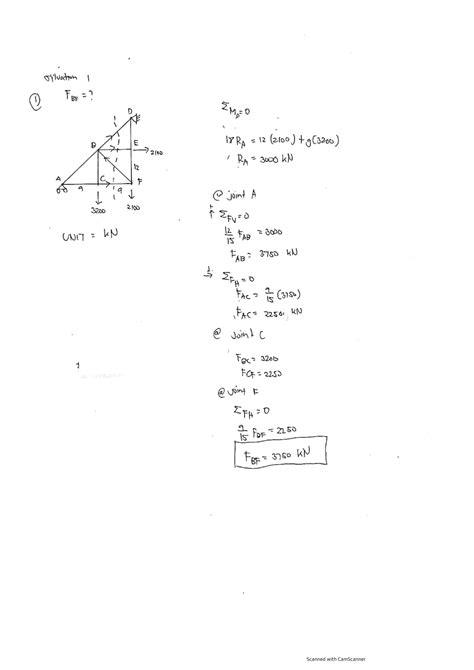 Situation 1
① F_BF = ?
D
B E → 2100
12
A 9 C 9 F
3200 2100
UNIT = kN
1
ΣM_D = 0
18 R_A = 12 (2100) + 9 (3200)
R_A = 3000 kN
@ joint A
+↑ ΣF_V = 0
12/15 F_AB = 3000
F_AB = 3750 kN
+→ ΣF_H = 0
F_AC = 9/15 (3750)
F_AC = 2250 kN
@ joint C
F_BC = 3200
F_CF = 2250
@ joint F
ΣF_H = 0
9/15 F_BF = 2250
F_BF = 3750 kN
Scanned with CamScanner